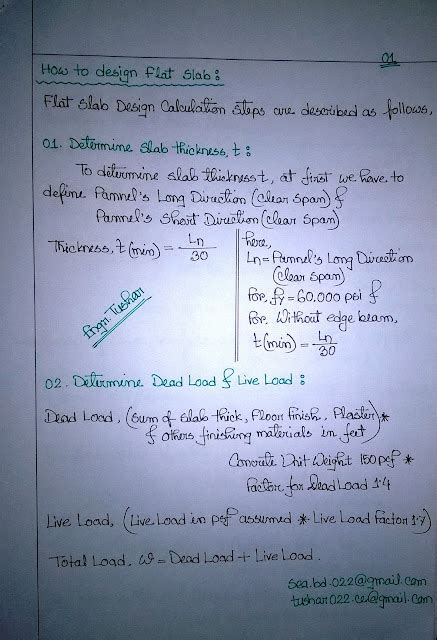 01
How to design Flat Slab:
Flat Slab Design Calculation steps are described as follows,
01. Determine Slab thickness, t:
To determine slab thickness t, at first we have to
define Pannel's Long Direction (clear span) &
Pannel's Short Direction (clear span)
Thickness, t (min) = Ln/30
here,
Ln = Pannel's Long Direction
(clear span)
For, fy = 60,000 psi &
For, Without edge beam,
t (min) = Ln/30
Engr. Tushar
02. Determine Dead Load & Live Load:
Dead Load, (Sum of slab thick, Floor finish, Plaster
& others finishing materials in feet) *
Concrete Unit Weight 150 pcf *
Factor for Dead Load 1.4
Live Load, (Live Load in psf assumed * Live Load Factor 1.7)
Total Load, W = Dead Load + Live Load.
sea.bd.022@gmail.com
tushar022.ce@gmail.com